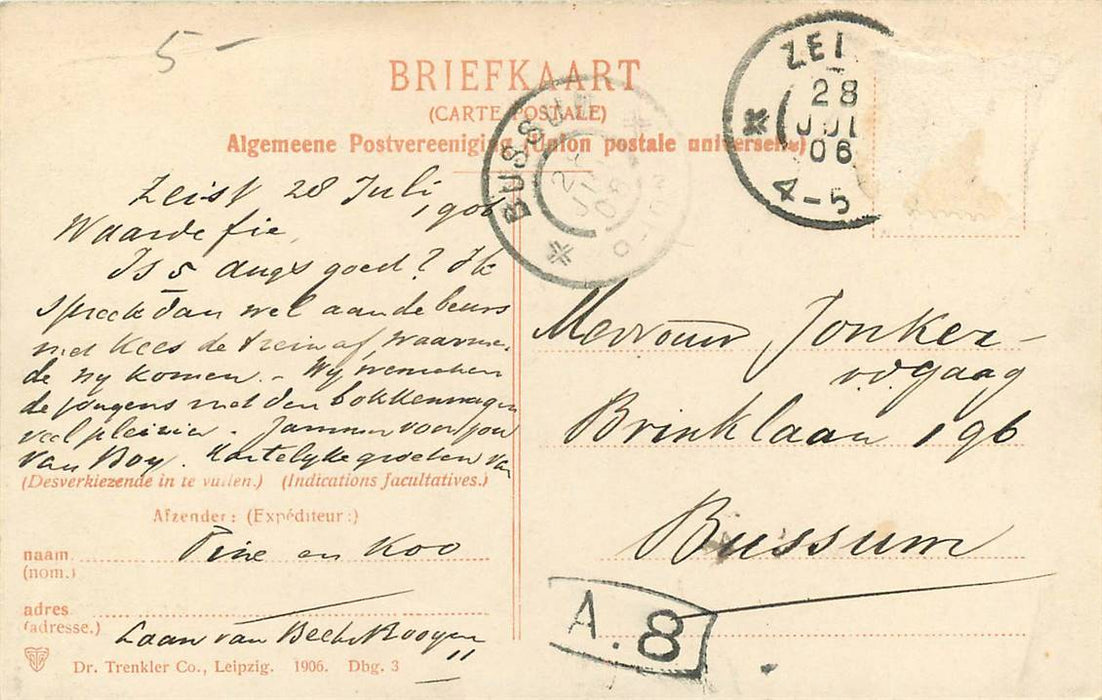 5 -
BRIEFKAART
(CARTE POSTALE)
Algemeene Postvereeniging (Union postale universelle)
ZEI
28
JUI
06
4-5
BUSSUM
Zeist 28 Juli
1906
Waarde fie,
Is 5 Augs goed? Ik
spreek dan wel aan de beurs
met Kees de trein af, waarme
de wy komen. - Wy wenschen
de jongens met den bokkenwagen
veel pleizier. Jammer voor jou
van Boy. Hartelyke groeten van
(Desverkiezende in te vullen.) (Indications facultatives.)
Afzender: (Expéditeur:)
naam
(nom.)
Tine en Koo
adres
(adresse.)
Laan van Beek Rooyen
11
Dr. Trenkler Co., Leipzig. 1906. Dbg. 3
Mevrouw Jonker-
Brinklaan 196
Bussum
A.8